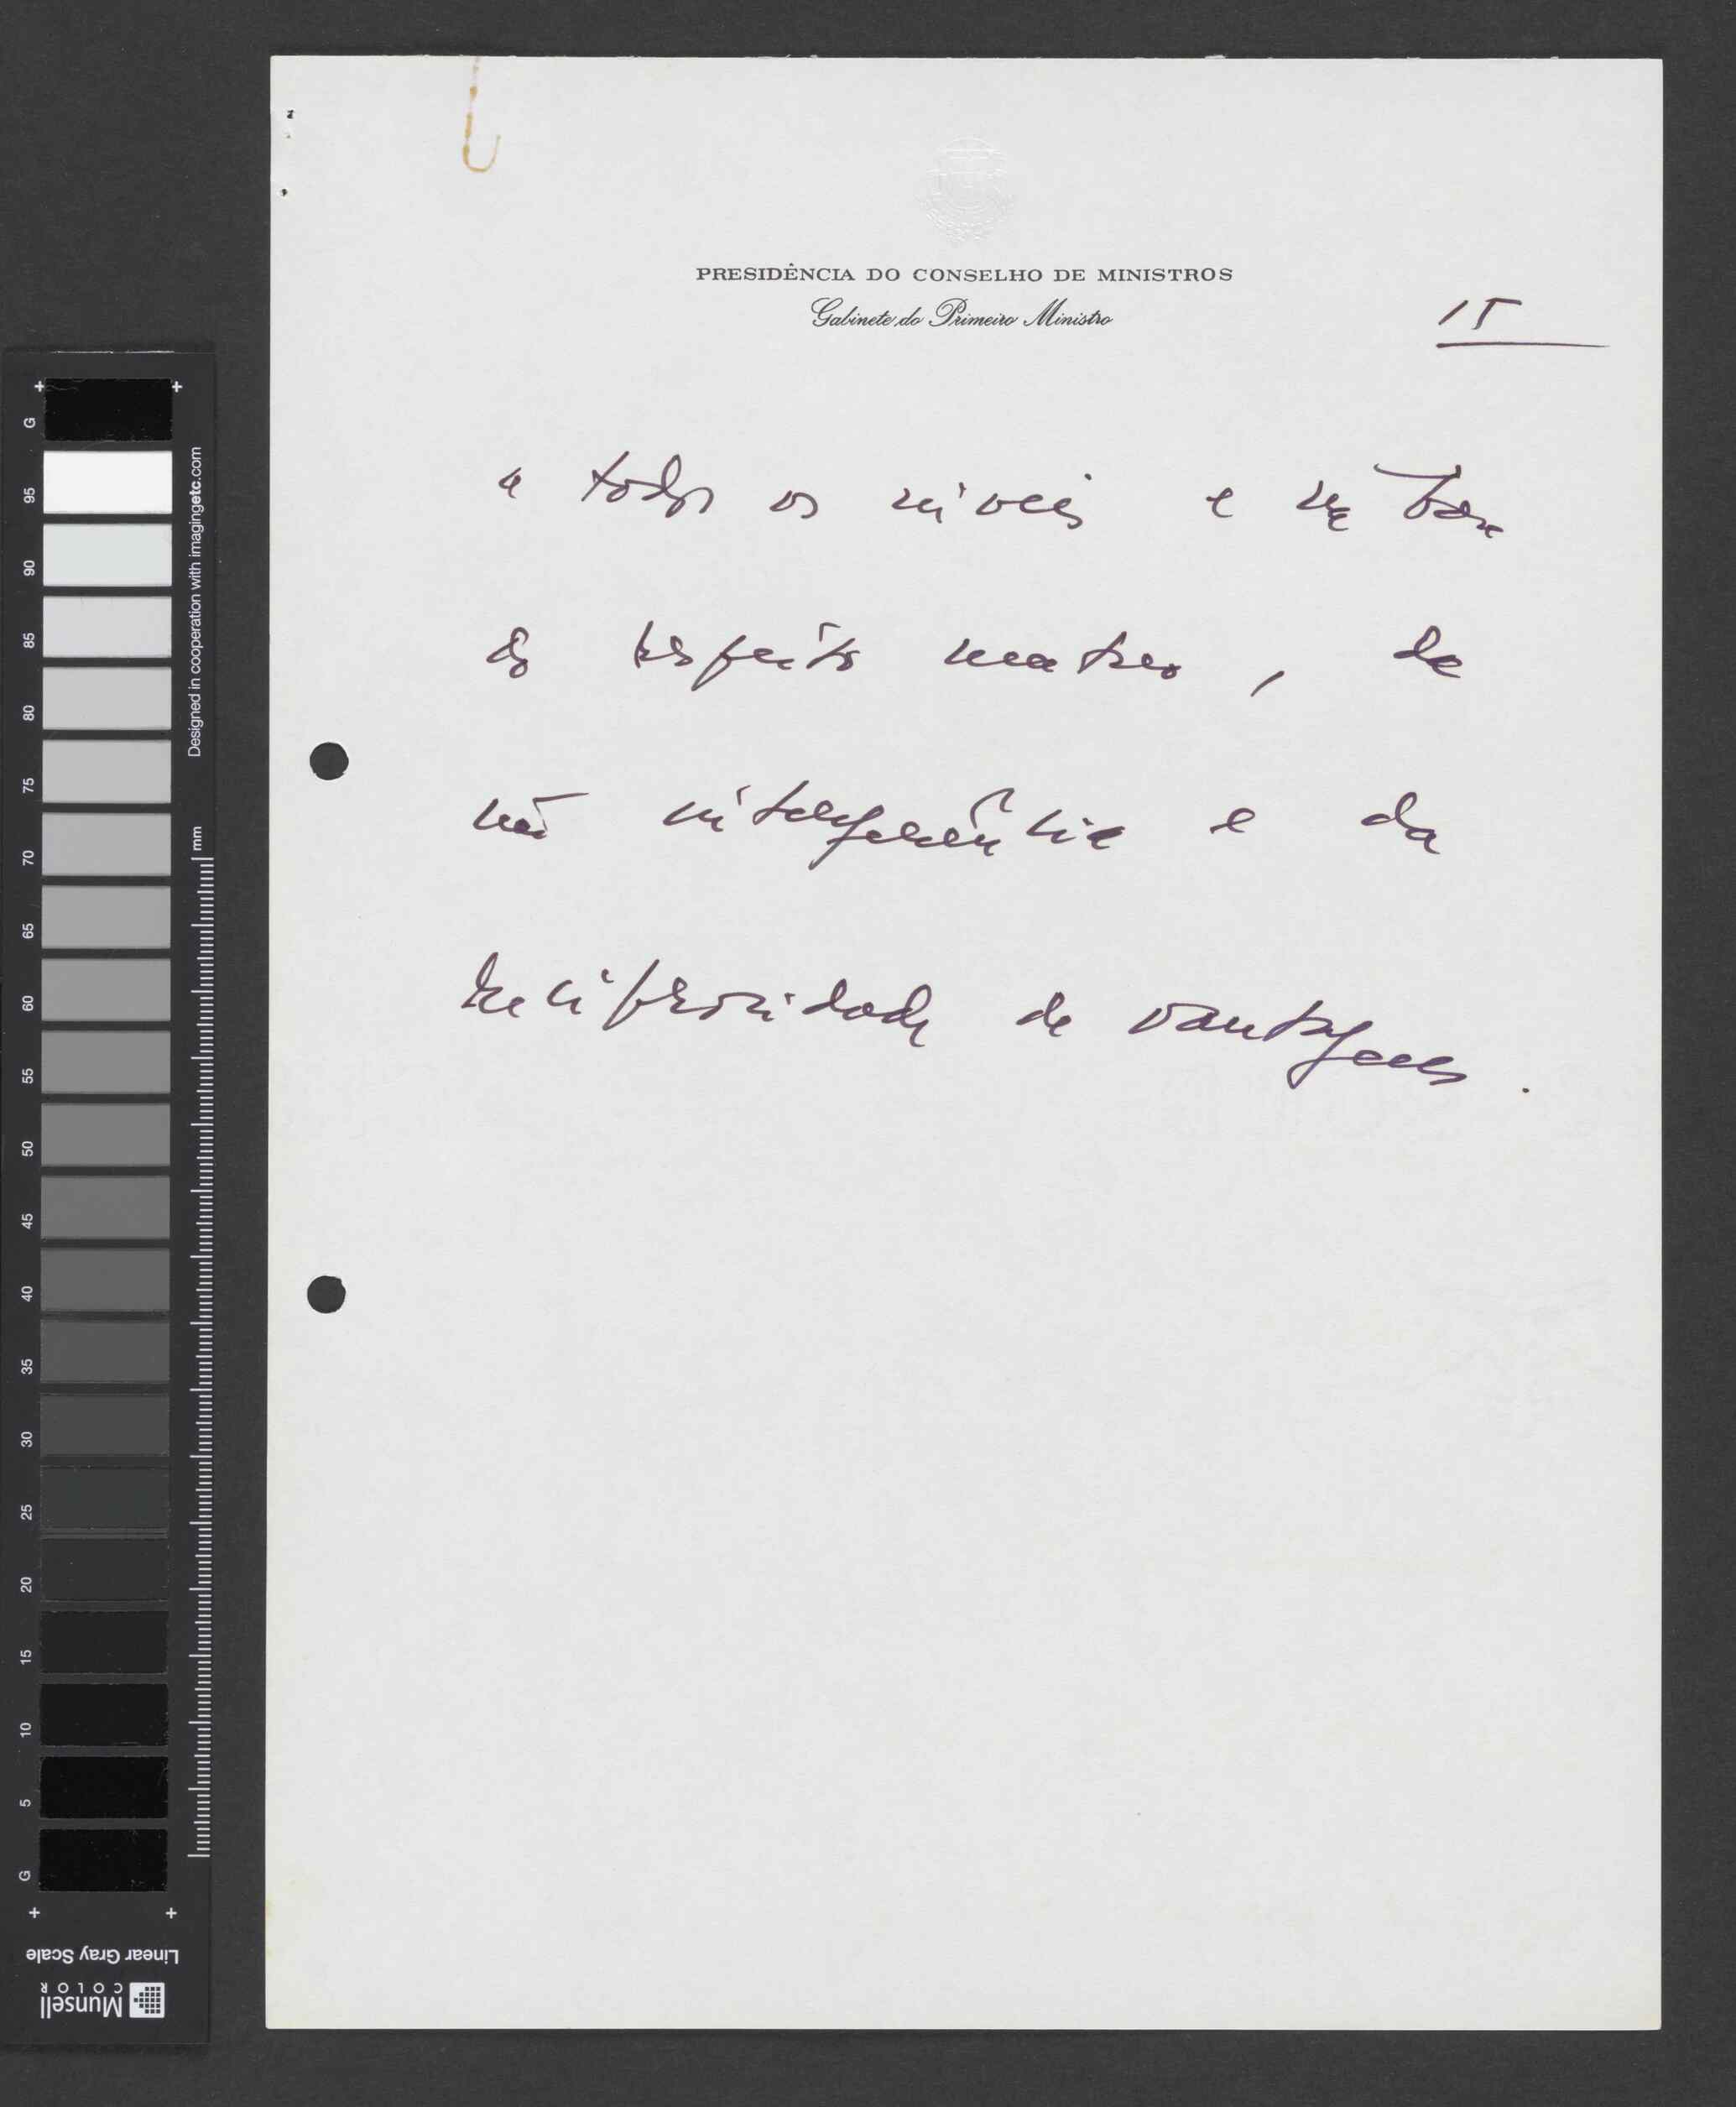 PRESIDÊNCIA DO CONSELHO DE MINISTROS
Gabinete do Primeiro Ministro
15
a todos os níveis e na base
do respeito mútuo, da
não interferência e da
reciprocidade de vantagens.
G 95 90 85 80 75 70 65 60 55 50 45 40 35 30 25 20 15 10 5 G
Designed in cooperation with imagingetc.com
mm
Linear Gray Scale
Munsell
COLOR